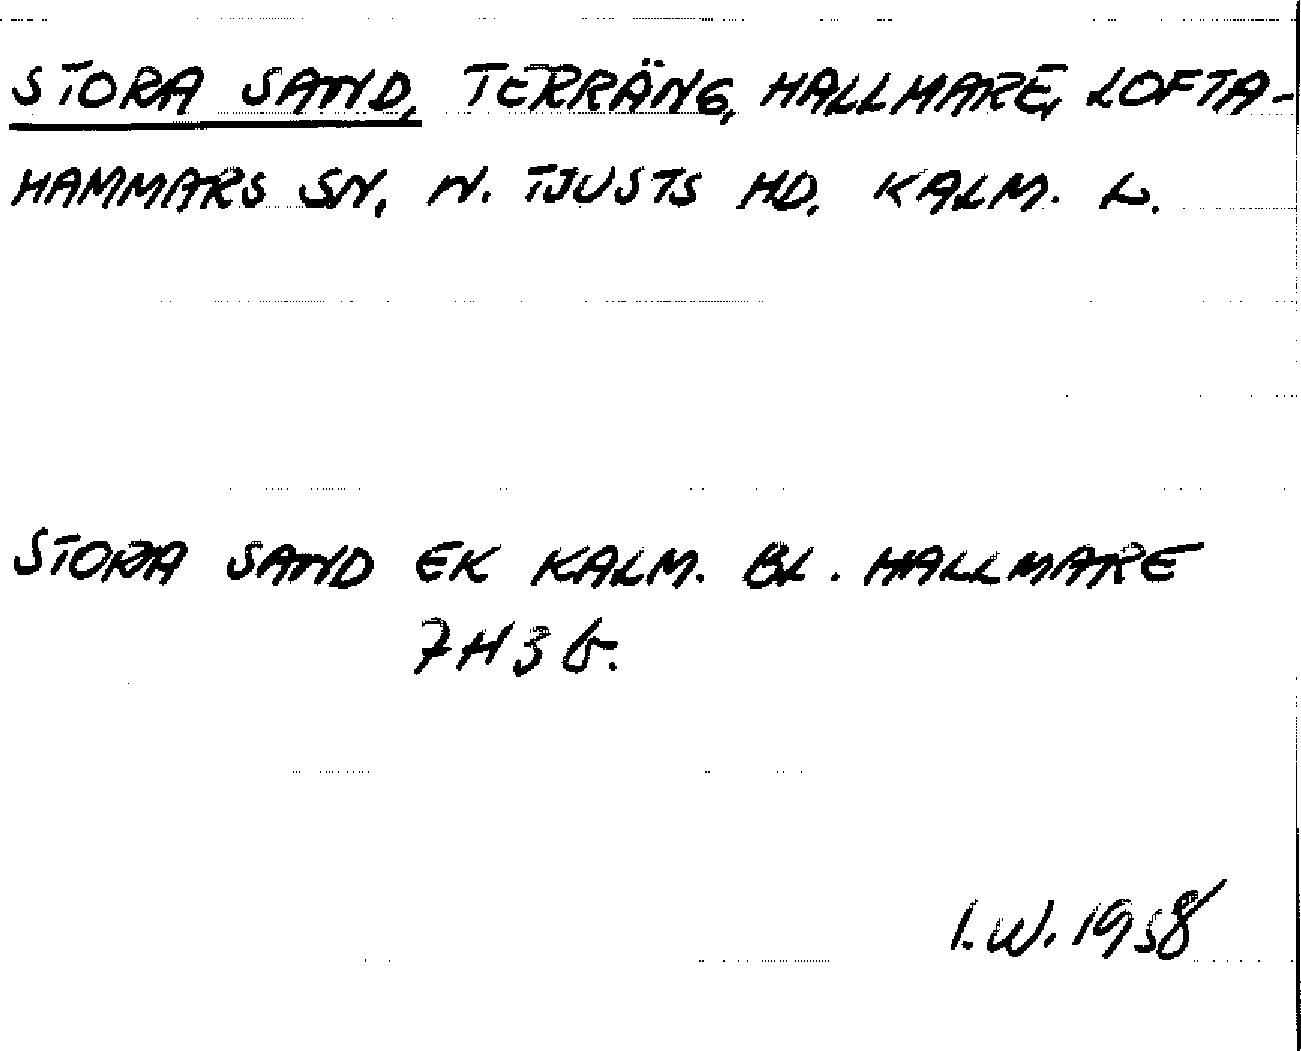 STORA SAND, TERRÄNG, HALLMARE, LOFTA-
HAMMARS SN, N. TJUSTS HD, KALM. L.
STORA SAND EK KALM. BL. HALLMARE
7H3b.
I.W. 1958